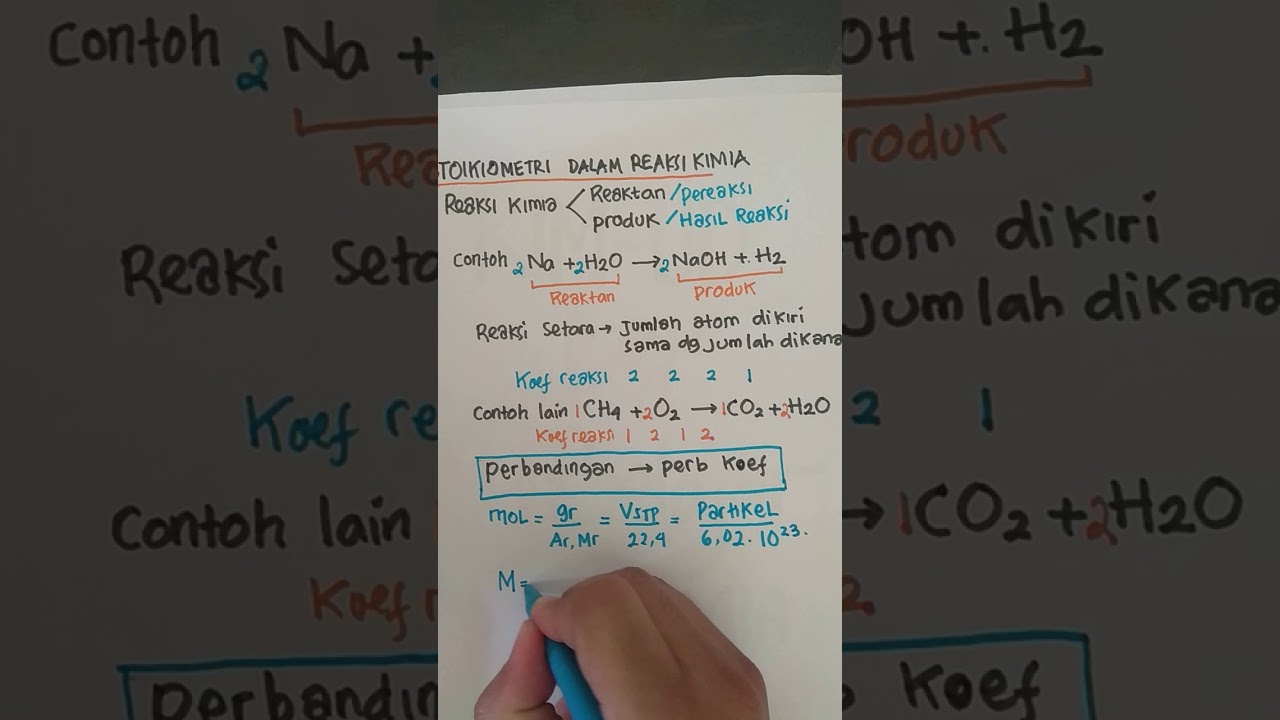 TOIKIOMETRI DALAM REAKSI KIMIA
Reaksi Kimia < Reaktan /pereaksi
produk /Hasil Reaksi
Contoh 2Na + 2H2O → 2NaOH + H2
Reaktan produk
Reaksi Setara → Jumlah atom dikiri
sama dg jumlah dikana
Koef reaksi 2 2 2 1
Contoh lain 1CH4 + 2O2 → 1CO2 + 2H2O
Koef reaksi 1 2 1 2
perbandingan → perb Koef
moL = gr/Ar, Mr = VSTP/22,4 = PartikeL/6,02.10^23.
M =